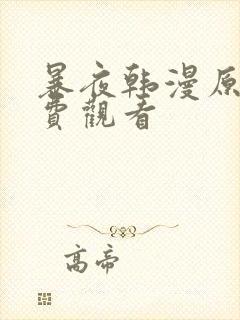 暴夜韩漫原
费觀看
高帝